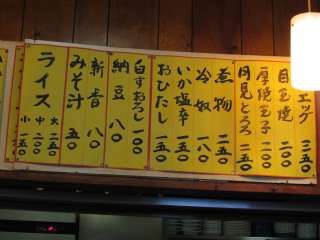 エッグ 三五〇
目玉焼 二〇〇
厚焼玉子 三〇〇
月見とろろ 二五〇
煮物 二五〇
冷奴 一八〇
いか塩辛 一五〇
おひたし 一五〇
白すおろし 一〇〇
納豆 八〇
新香 八〇
みそ汁 五〇
ライス 大 二五〇
中 二〇〇
小 一五〇